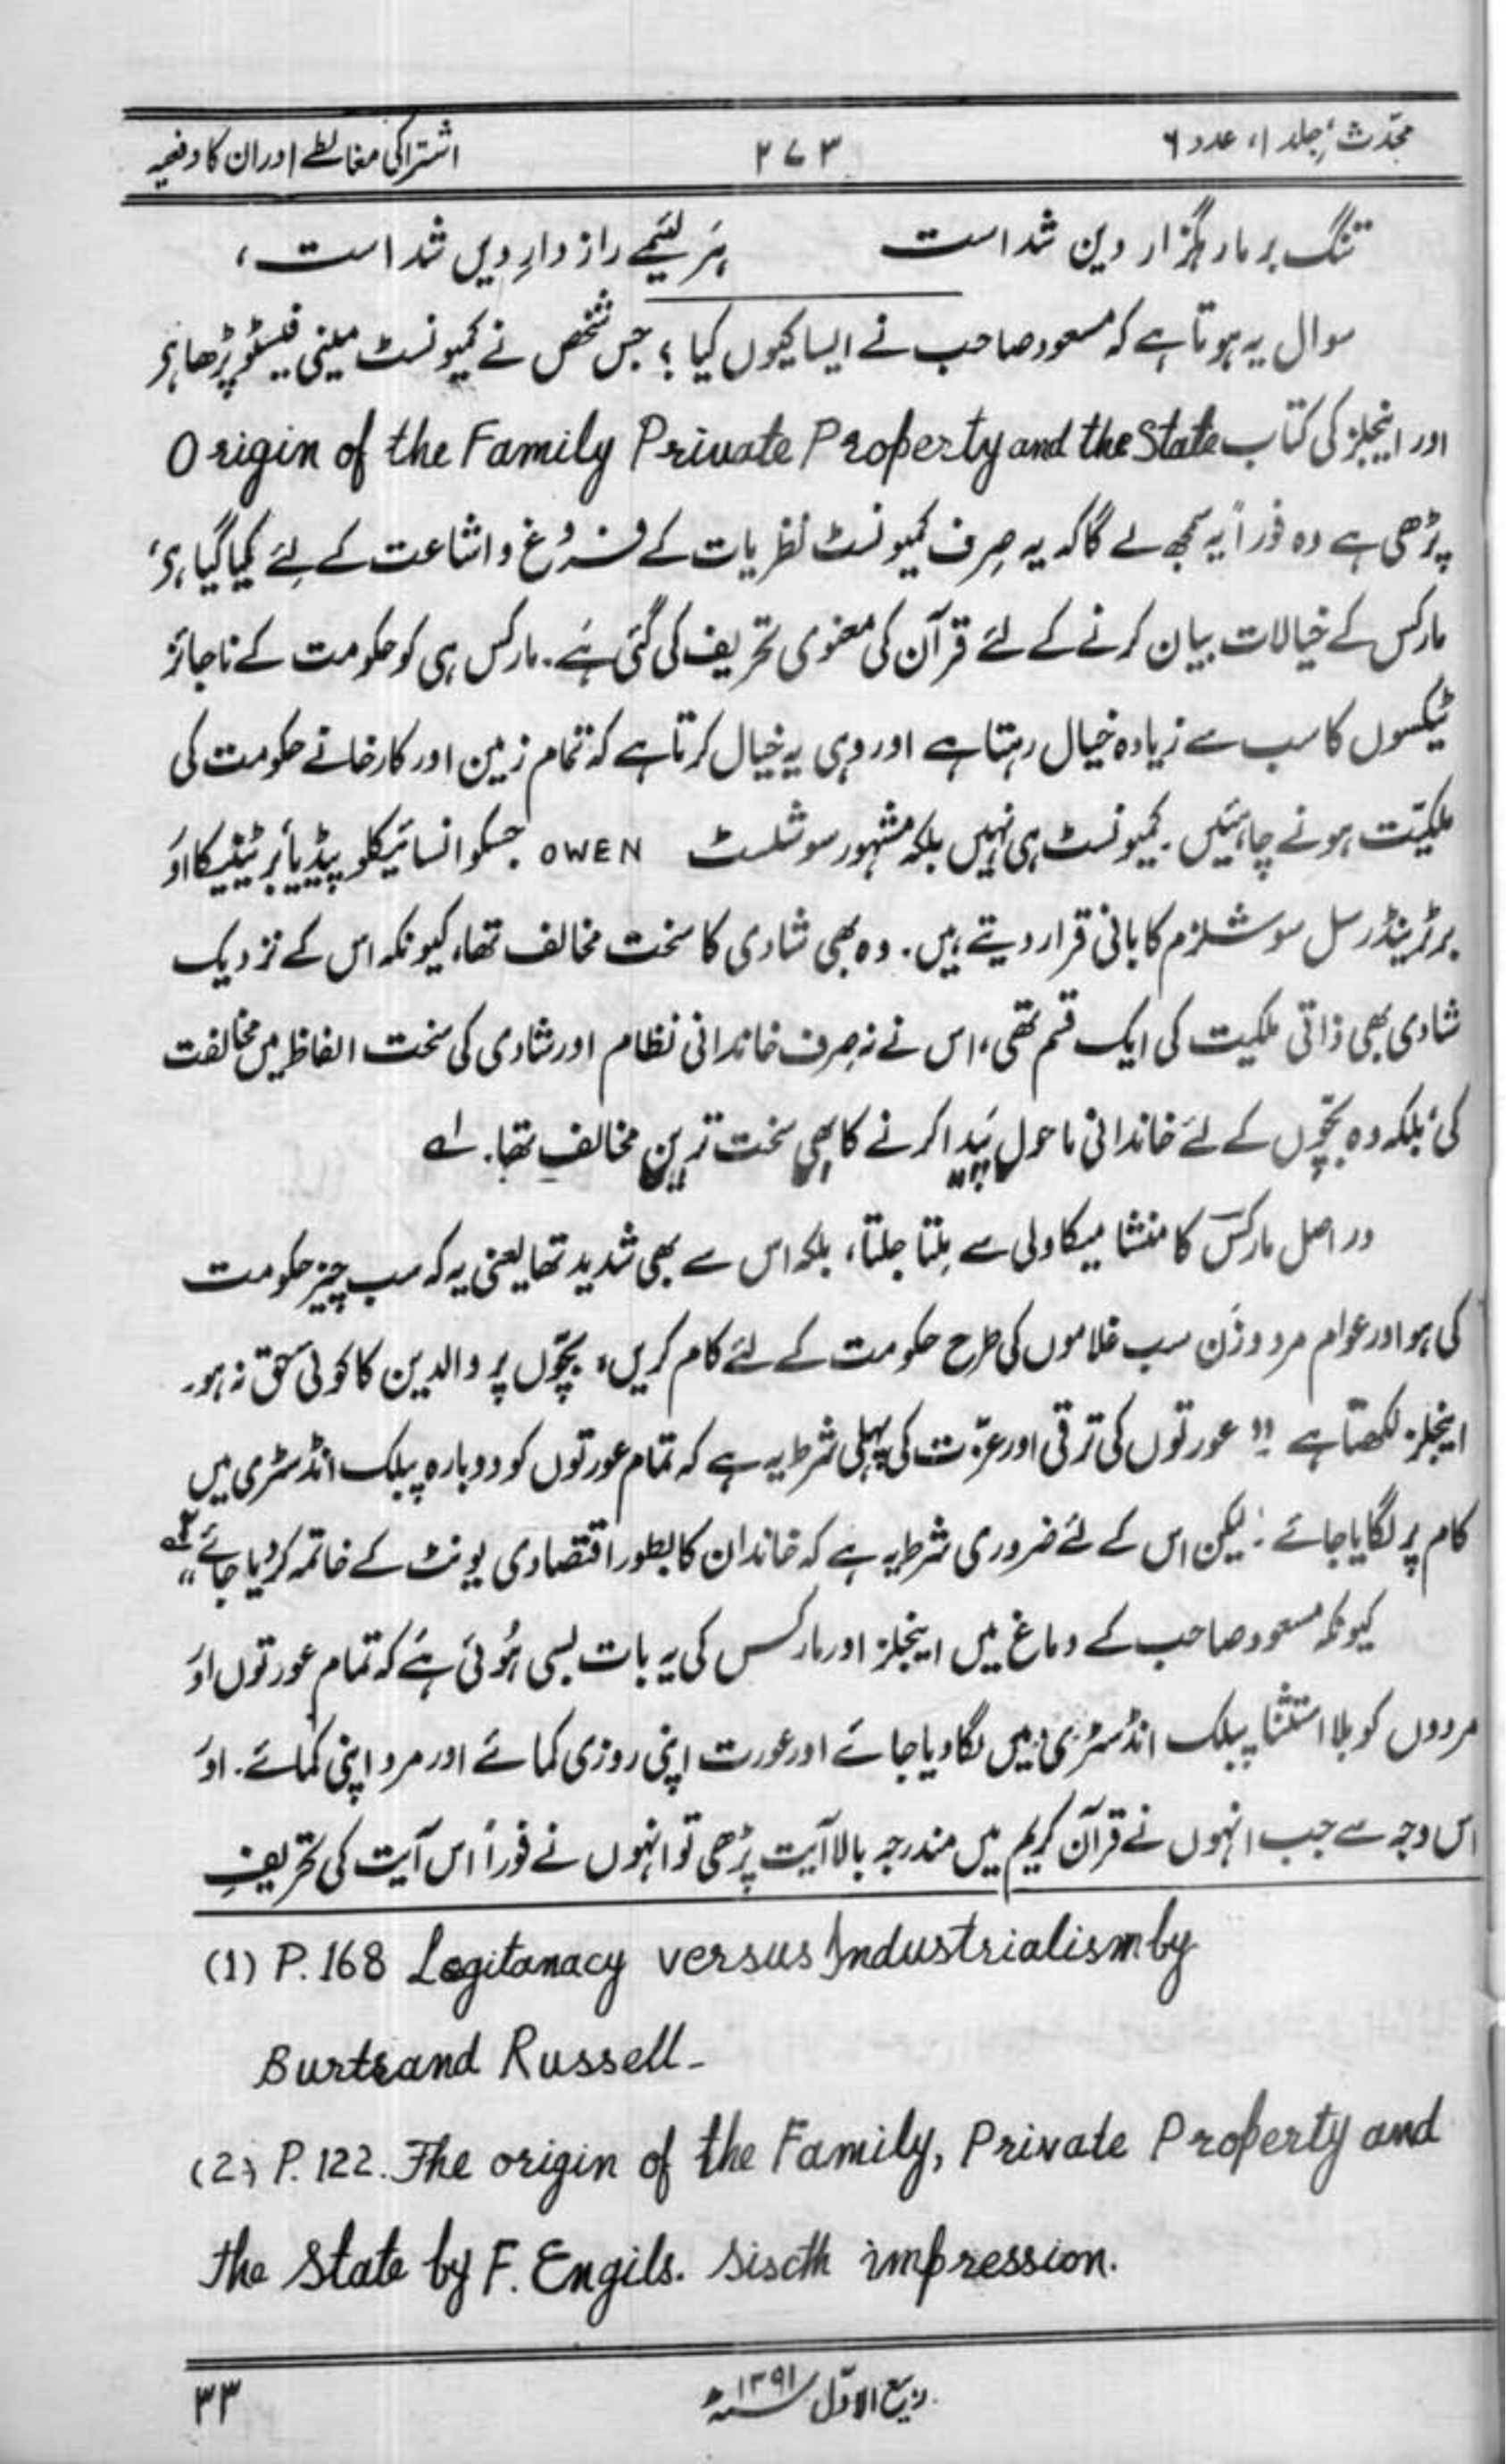 محدّث، جلد ۱، عدد ۶
۲۷۳
اشتراکی مغالطے اور ان کا دفعیہ
تنگ بر ما رہگزار دین شد است ہر لئیمے راز دارِ دیں شد است،
سوال یہ ہوتا ہے کہ مسعود صاحب نے ایسا کیوں کیا؟ جس شخص نے کمیونسٹ مینی فیسٹو پڑھا ہو
اور اینجلز کی کتاب Origin of the Family Private Property and the State
پڑھی ہے وہ فوراً یہ سمجھ لے گا کہ یہ صِرف کمیونسٹ نظریات کے فروغ و اشاعت کے لِئے کیا گیا ہے،
مارکس کے خیالات بیان کرنے کے لئے قرآن کی معنوی تحریف کی گئی ہے۔ مارکس ہی کو حکومت کے ناجائز
ٹیکسوں کا سب سے زیادہ خیال رہتا ہے اور وہی یہ خیال کرتا ہے کہ تمام زمین اور کارخانے حکومت کی
ملکیّت ہونے چاہئیں۔ کمیونسٹ ہی نہیں بلکہ مشہور سوشلسٹ OWEN جسکو انسائیکلو پیڈیا برٹینیکا اور
برٹرینڈرسل سوشلزم کا بانی قرار دیتے ہیں۔ وہ بھی شادی کا سخت مخالف تھا، کیونکہ اس کے نزدیک
شادی بھی ذاتی ملکیت کی ایک قسم تھی، اس نے نہ صِرف خاندانی نظام اور شادی کی سخت الفاظ میں مخالفت
کی، بلکہ وہ بچّوں کے لئے خاندانی ماحول پَیدا کرنے کا بھی سخت ترین مخالف تھا۔ ۱؎
در اصل مارکسؔ کا منشا میکاولی سے مِلتا جلتا، بلکہ اس سے بھی شدید تھا یعنی یہ کہ سب چیز حکومت
کی ہو اور عوام مرد و زَن سب غلاموں کی طرح حکومت کے لئے کام کریں، بچّوں پر والدین کا کوئی حق نہ ہو۔
اینجلز لکھتا ہے "عورتوں کی ترقی اور عزّت کی پہلی شرط یہ ہے کہ تمام عورتوں کو دوبارہ پبلک انڈسٹری میں
کام پر لگایا جائے؛ لیکن اس کے لئے ضروری شرط یہ ہے کہ خاندان کا بطور اقتصادی یونٹ کے خاتمہ کر دیا جائے" ۲؎
کیونکہ مسعود صاحب کے دماغ میں اینجلز اور مارکس کی یہ بات بسی ہُوئی ہے کہ تمام عورتوں اور
مردوں کو بلا استثنا پبلک انڈسٹری میں لگا دیا جائے اور عورت اپنی روزی کمائے اور مرد اپنی کمائے۔ اور
اس وجہ سے جب انہوں نے قرآن کریم میں مندرجہ بالا آیت پڑھی تو انہوں نے فوراً اس آیت کی تحریفِ
(1) P. 168 Legitanacy versus Industrialism by
Burtrand Russell-
(2) P. 122. The origin of the Family, Private Property and
the State by F. Engils. Siscth impression.
ربیع الاوّل ۱۳۹۱ھ
۳۳